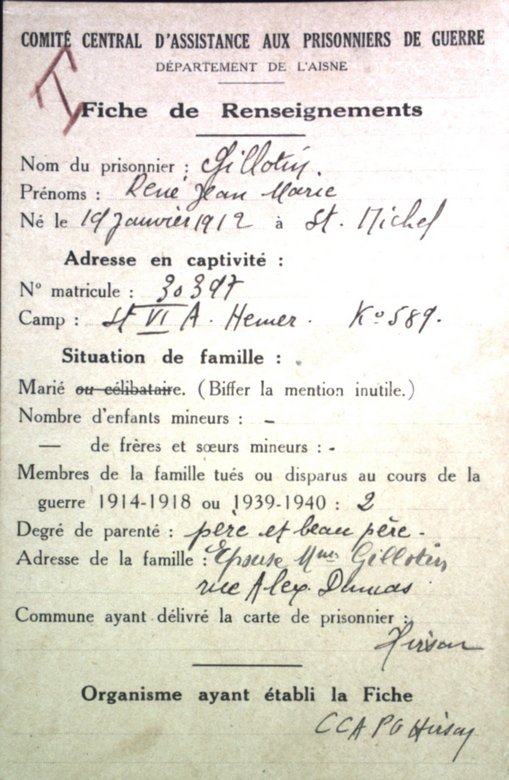 COMITÉ CENTRAL D'ASSISTANCE AUX PRISONNIERS DE GUERRE
DÉPARTEMENT DE L'AISNE
Fiche de Renseignements
Nom du prisonnier : Gillotin.
Prénoms : René Jean Marie
Né le 19 Janvier 1912 à St. Michel
Adresse en captivité :
N° matricule : 30397
Camp : St VI A. Hemer. Ko 589.
Situation de famille :
Marié ou célibataire. (Biffer la mention inutile.)
Nombre d'enfants mineurs : -
— de frères et sœurs mineurs : -
Membres de la famille tués ou disparus au cours de la
guerre 1914-1918 ou 1939-1940 : 2
Degré de parenté : père et beau père.
Adresse de la famille : Epouse Mme Gillotin
rue Alex. Dumas
Commune ayant délivré la carte de prisonnier :
Hirson
Organisme ayant établi la Fiche
CCAPG Hirson